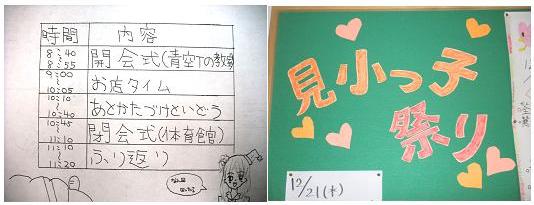 時間 内容
8:40～8:55 開会式(青空Tの教室)
9:00～10:05 お店タイム
10:10～10:40 あとかたづけといどう
10:45～11:10 閉会式(体育館)
11:10～11:20 ふり返り
見小っ子
祭り
12/21(木)